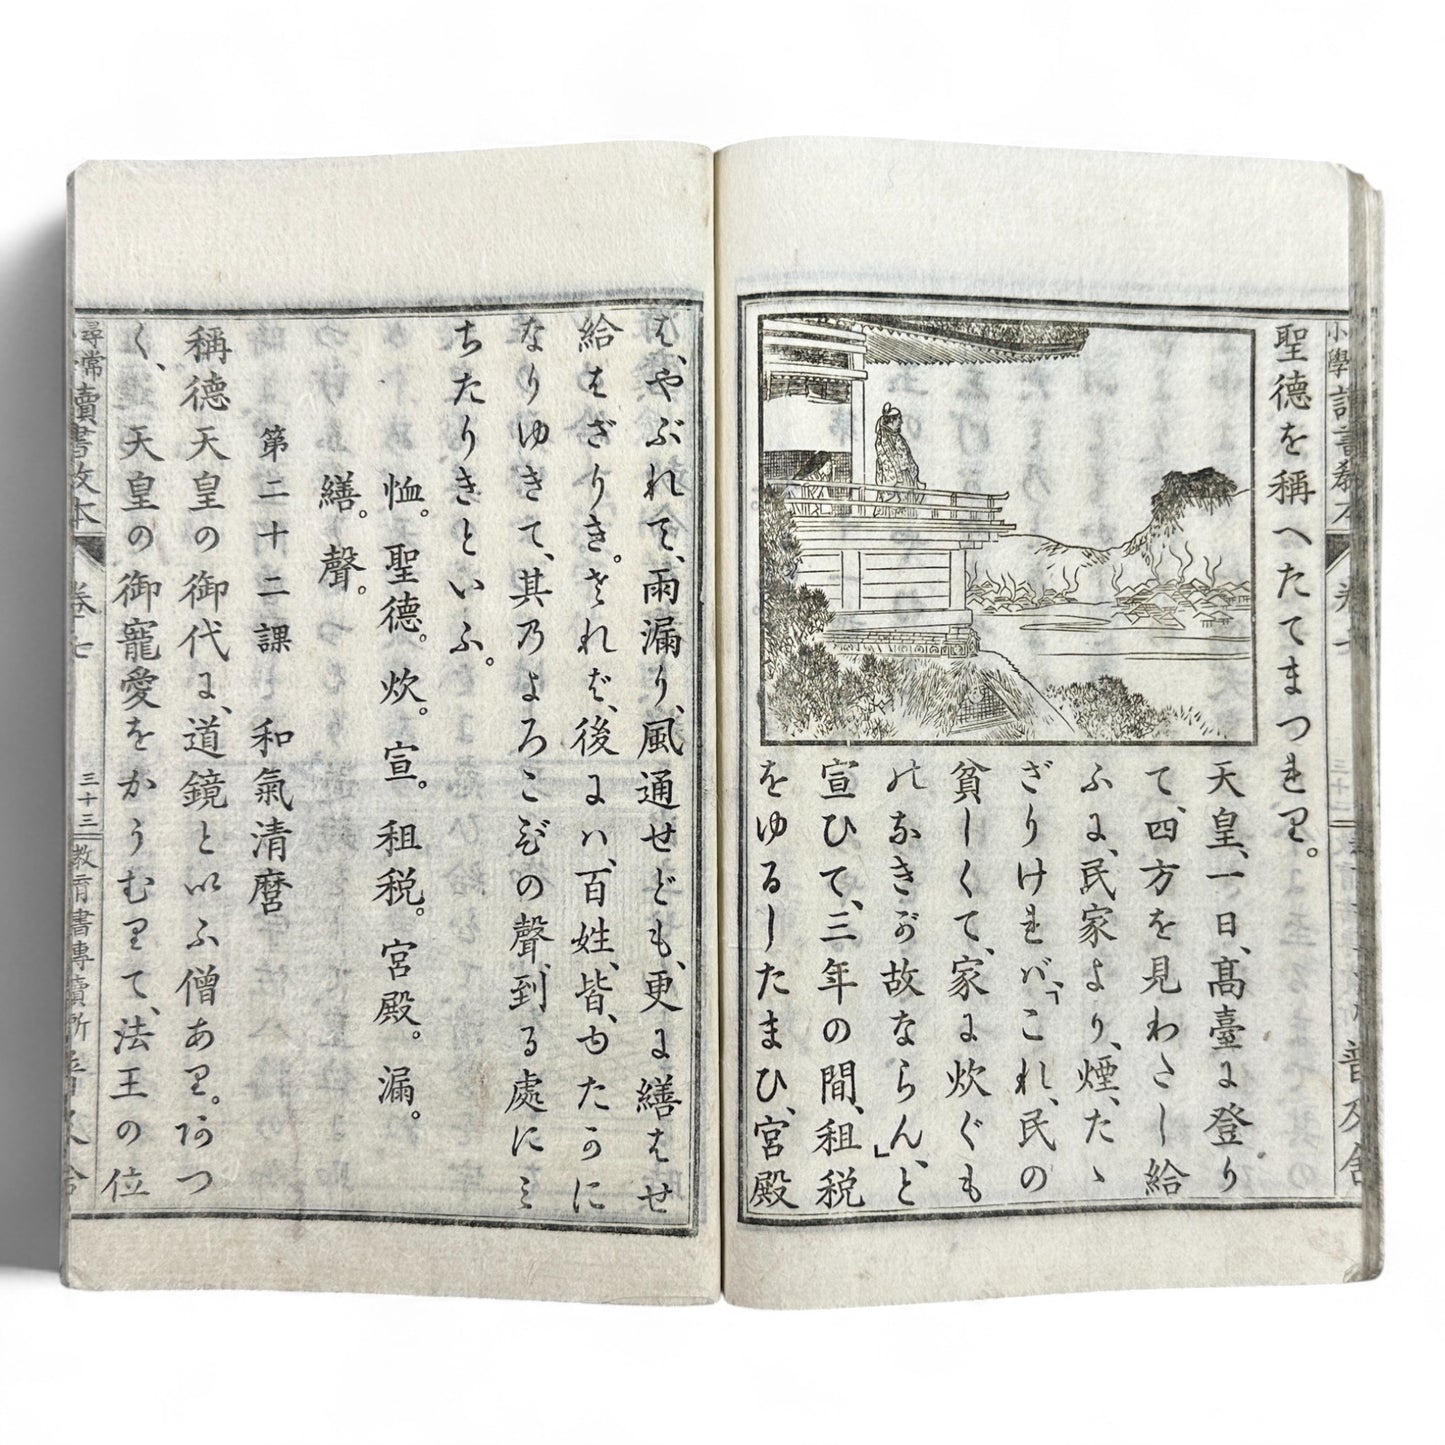 聖德を稱へたてまつれり。
天皇、一日、髙臺に登り
て、四方を見わたし給
ふに、民家より、煙、たゝ
ざりければ、「これ、民の
貧しくて、家に炊ぐも
のなきが故ならん」と
宣ひて、三年の間、租税
をゆるしたまひ、宮殿
は、やぶれて、雨漏り、風通せども、更に繕はせ
給はざりき。されば、後には、百姓、皆、ゆたかに
なりゆきて、其のよろこびの聲、到る處にミ
ちたりきといふ。
恤。聖德。炊。宣。租税。宮殿。漏。
繕。聲。
第二十二課 和氣清麿
稱德天皇の御代に、道鏡といふ僧あり。あつ
く、天皇の御寵愛をかうむりて、法王の位
尋常
讀書敎本
卷七
三十三
普及舍